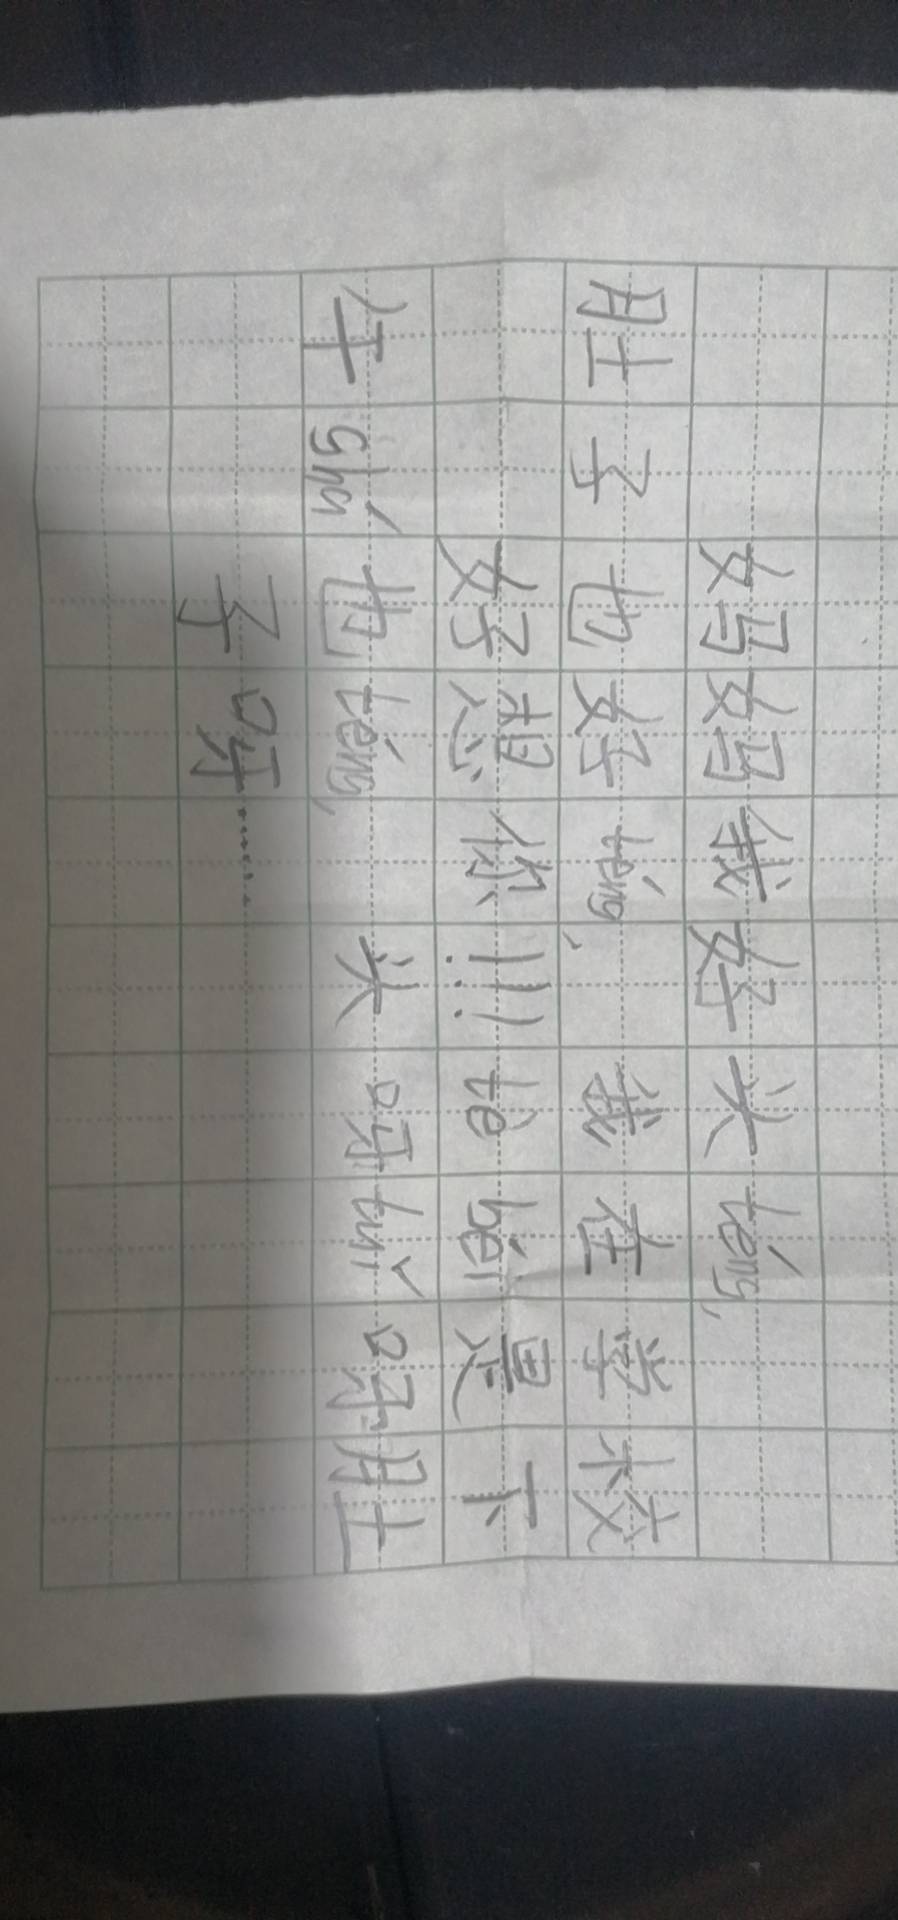 妈妈我好头téng,
肚子也好téng, 我在学校
好想你!!!tè béi是下
午shá也téng, 头呀tuǐ呀肚
子呀……